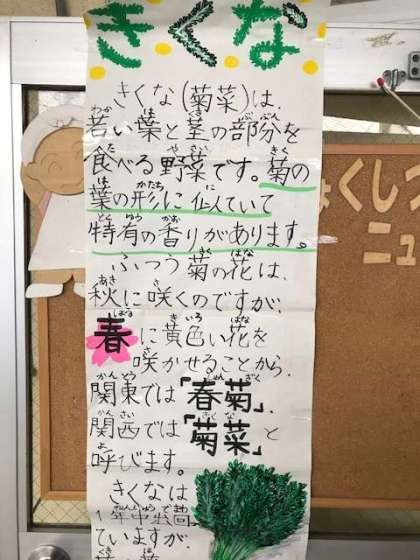 きくな
きくな(菊菜)は、
若い葉と茎の部分を
食べる野菜です。菊の
葉の形に似ていて
特有の香りがあります。
ふつう菊の花は、
秋に咲くのですが、
春に黄色い花を
咲かせることから、
関東では「春菊」、
関西では「菊菜」と
呼びます。
きくなは
1年中出回
ていますが、
ょくしつ
ニュ